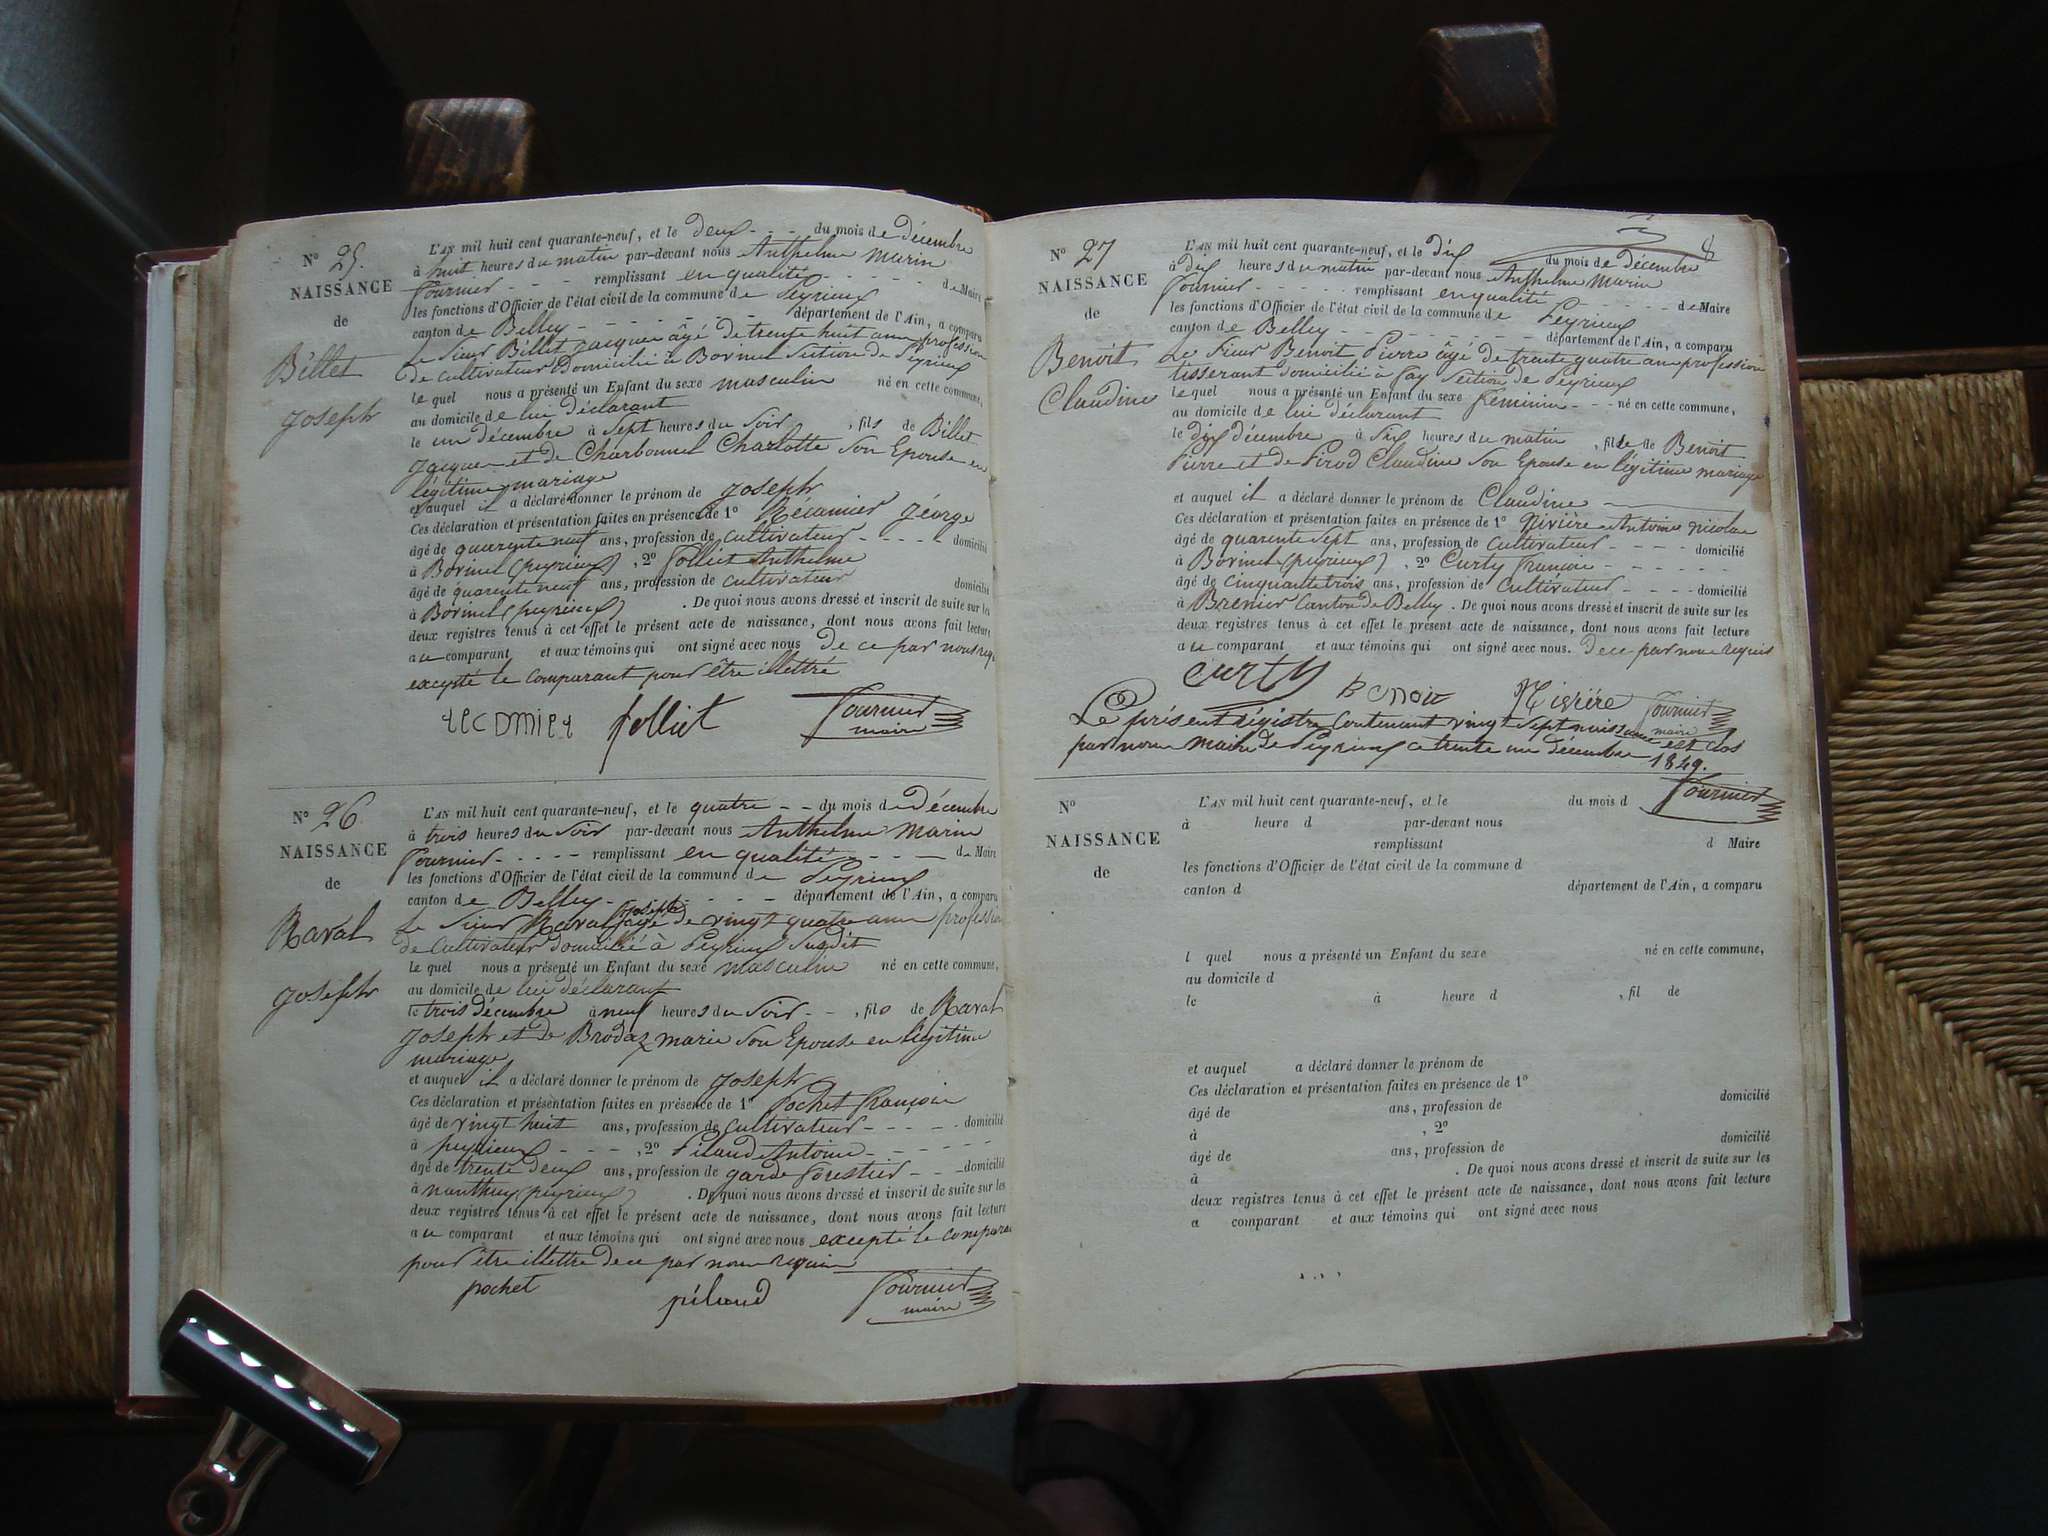 N° 25.
NAISSANCE
de
Billet
Joseph
L'AN mil huit cent quarante-neuf, et le deux - - - du mois de décembre
à huit heures du matin par-devant nous Anthelme Marin
Fournier - - - remplissant en qualité - - - - de Maire
les fonctions d'Officier de l'état civil de la commune de Peyrieux
canton de Belley - - - - - département de l'Ain, a comparu
Le Sieur Billet Jacques âgé de trente huit ans profession
de cultivateur domicilié à Bovinel Section de Peyrieux
le quel nous a présenté un Enfant du sexe masculin né en cette commune,
au domicile de lui déclarant
le un décembre à sept heures du Soir , fils de Billet
Jacques et de Charbonnel Charlotte Son Epouse en
légitime mariage
et auquel il a déclaré donner le prénom de Joseph
Ces déclaration et présentation faites en présence de 1° Récamier George
âgé de quarente neuf ans, profession de cultivateur - - - - domicilié
à Bovinel (peyrieux) , 2° Jolliet Anthelme
âgé de quarente neuf ans, profession de cultivateur domicilié
à Bovinel (peyrieux) . De quoi nous avons dressé et inscrit de suite sur les
deux registres tenus à cet effet le présent acte de naissance, dont nous avons fait lecture
au comparant et aux témoins qui ont signé avec nous de ce par nous requis
excepté le comparant pour être illettré
recomier jolliet Fournier
maire
N° 26
NAISSANCE
de
Raval
Joseph
L'AN mil huit cent quarante-neuf, et le quatre - - du mois de Décembre
à trois heures du Soir par-devant nous Anthelme Marin
Fournier - - - - remplissant en qualité - - - de Maire
les fonctions d'Officier de l'état civil de la commune de Peyrieux
canton de Belley - - - - - département de l'Ain, a comparu
Le Sieur Raval Joseph âgé de vingt quatre ans profession
de Cultivateur domicilié à Peyrieux Susdit
le quel nous a présenté un Enfant du sexe masculin né en cette commune,
au domicile de lui déclarant
le trois décembre à neuf heures du Soir - - , fils de Raval
Joseph et de Brodaz marie Son Epouse en légitime
mariage
et auquel il a déclaré donner le prénom de Joseph
Ces déclaration et présentation faites en présence de 1° Pochet françois
âgé de vingt huit ans, profession de cultivateur - - - - domicilié
à peyrieux - - - , 2° Pilaud Antoine - - - -
âgé de trente deux ans, profession de garde forestier - - - domicilié
à nanthuy (peyrieux) . De quoi nous avons dressé et inscrit de suite sur les
deux registres tenus à cet effet le présent acte de naissance, dont nous avons fait lecture
au comparant et aux témoins qui ont signé avec nous excepté le comparant
pour être illettré de ce par nous requis
pochet pilaud Fournier
maire
8
N° 27
NAISSANCE
de
Benoit
Claudine
L'AN mil huit cent quarante-neuf, et le dix du mois de décembre
à dix heures du matin par-devant nous Anthelme Marin
Fournier - - - - - remplissant en qualité - - - - de Maire
les fonctions d'Officier de l'état civil de la commune de Peyrieux
canton de Belley - - - - - département de l'Ain, a comparu
Le Sieur Benoit Pierre âgé de trente quatre ans profession
tisserant domicilié à Fay Section de Peyrieux
le quel nous a présenté un Enfant du sexe féminin - - - né en cette commune,
au domicile de lui déclarant
le dix décembre à Six heures du matin , fille de Benoit
Pierre et de Pirod Claudine Son Epouse en légitime mariage
et auquel il a déclaré donner le prénom de Claudine
Ces déclaration et présentation faites en présence de 1° Nivière Antoine Nicolas
âgé de quarente sept ans, profession de Cultivateur - - - - domicilié
à Bovinel (peyrieux) , 2° Curty françois - - - - - -
âgé de cinquante trois ans, profession de Cultivateur - - - - domicilié
à Brenier Canton de Belley . De quoi nous avons dressé et inscrit de suite sur les
deux registres tenus à cet effet le présent acte de naissance, dont nous avons fait lecture
au comparant et aux témoins qui ont signé avec nous. de ce par nous requis
curty Benoit Nivière Fournier
maire
Le présent régistre Contenant vingt Sept naissances est clos
par nous maire de Peyrieux ce trente un décembre
1849.
Fournier
N°
NAISSANCE
de
L'AN mil huit cent quarante-neuf, et le du mois d
à heure d par-devant nous
remplissant d Maire
les fonctions d'Officier de l'état civil de la commune d
canton d département de l'Ain, a comparu
l quel nous a présenté un Enfant du sexe né en cette commune,
au domicile d
le à heure d , fil de
et auquel a déclaré donner le prénom de
Ces déclaration et présentation faites en présence de 1°
âgé de ans, profession de domicilié
à , 2°
âgé de ans, profession de domicilié
à . De quoi nous avons dressé et inscrit de suite sur les
deux registres tenus à cet effet le présent acte de naissance, dont nous avons fait lecture
a comparant et aux témoins qui ont signé avec nous